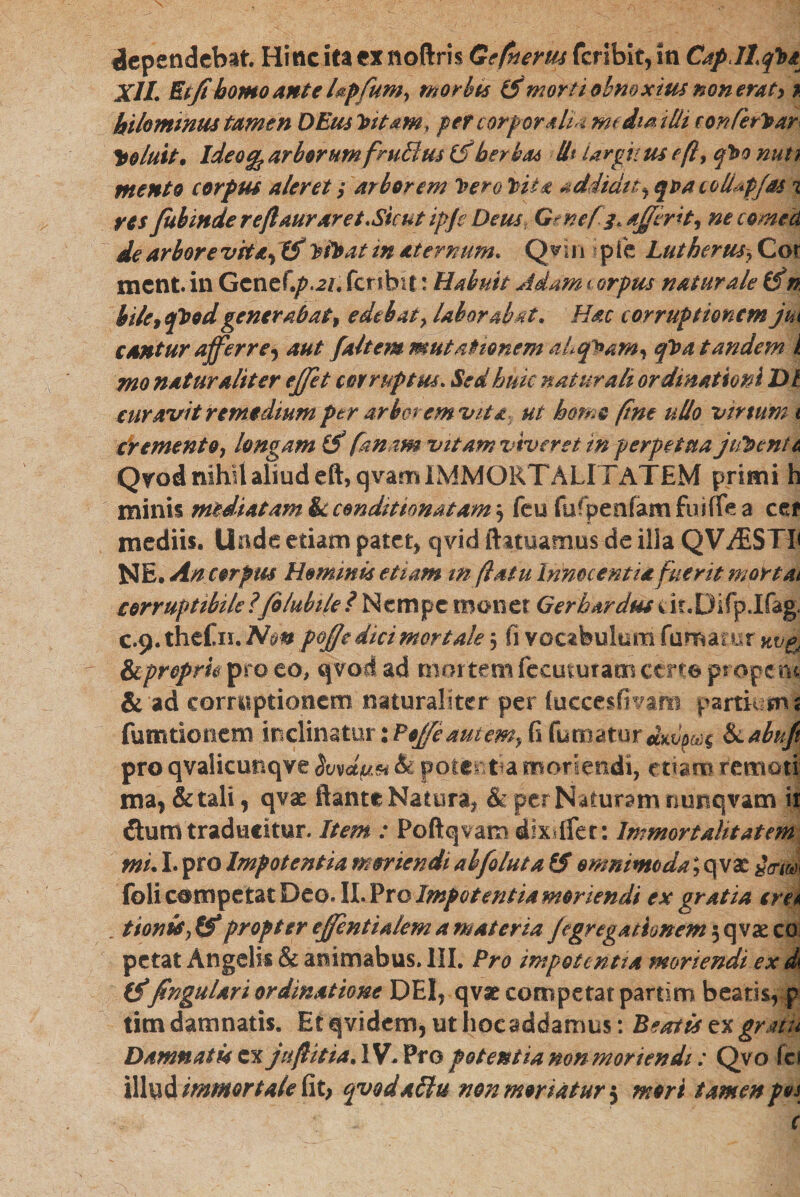 dependebat. Hinc ita ex noſtris Geſnerus ſcribit, in Cap. II. qvæ
XII. Etſi homo ante lapſum, morbis & morti obnoxius non erat,
hilominus tamen DEus vitam, per corporalia media illi conſervar
voluit. Ideoq́; arborum fructus & herbas illi largitus eſt, qvo nutri
mento corpus aleret; arborem vero vitæ addidit, qva collapſas
res ſubinde reſtauraret. Sicut ipſe Deus, Geneſ. 3. aſſerit, ne comed
de arbore vitæ, & vivat in æternum. Qvin ipſe Lutherus, Com
ment. in Geneſ. p. 21. ſcribit: Habuit Adam corpus naturale & 
bile, qvod generabat, edebat, laborabat. Hæc corruptionem
cantur afferre, aut ſaltem mutationem aliqvam, qva tandem
mo naturaliter eſſet corruptus. Sed huic naturali ordinationi
curavit remedium per arborem vitæ, ut homo ſine ullo virium
cremento, longam & ſanam vitam viveret in perpetua juventa
Qvod nihil aliud eſt, qvam IMMORTALITATEM primi h
minis mediatam & conditionatam; ſeu ſuſpenſam fuiſſe a cer
mediis. Unde etiam patet, qvid ſtatuamus de illa QVÆSTI
NE. An corpus Hominis etiam in ſtatu Innocentiæ fuerit mortal
corruptibile? ſolubile? Nempe monet Gerhardus cit. Diſp. Iſag.
c. 9. theſ. 11. Non poſſe dici mortale; ſi vocabulum ſumatur
& proprie pro eo, qvod ad mortem ſecuturam certo propen
& ad corruptionem naturaliter per ſuccesſivam partium
ſumtionem inclinatur: Poſſe autem, ſi ſumatur ἀκύρως & abuſi
pro qvalicunqve δυνάμει & potentia moriendi, etiam remoti
ma, & tali, qvæ ſtante Natura, & per Naturam nunqvam
ctum traducitur. Item: Poſtqvam dixiſſet: Immortalitatem
mi. I. pro Impotentia moriendi abſoluta & omnimoda; qvæ
ſoli competat Deo. II. Pro Impotentia moriendi ex gratia crea
tionis, & propter eſſentialem a materia ſegregationem; qvæ co
petat Angelis & animabus. III. Pro impotentia moriendi ex
& ſingulari ordinatione DEI, qvæ competat partim beatis, p
tim damnatis. Et qvidem, ut hoc addamus: Beatis ex gratia
Damnatis ex juſtitia. IV. Pro potentia non moriendi: Qvo
illud immortale ſit, qvod actu non moriatur; mori tamen